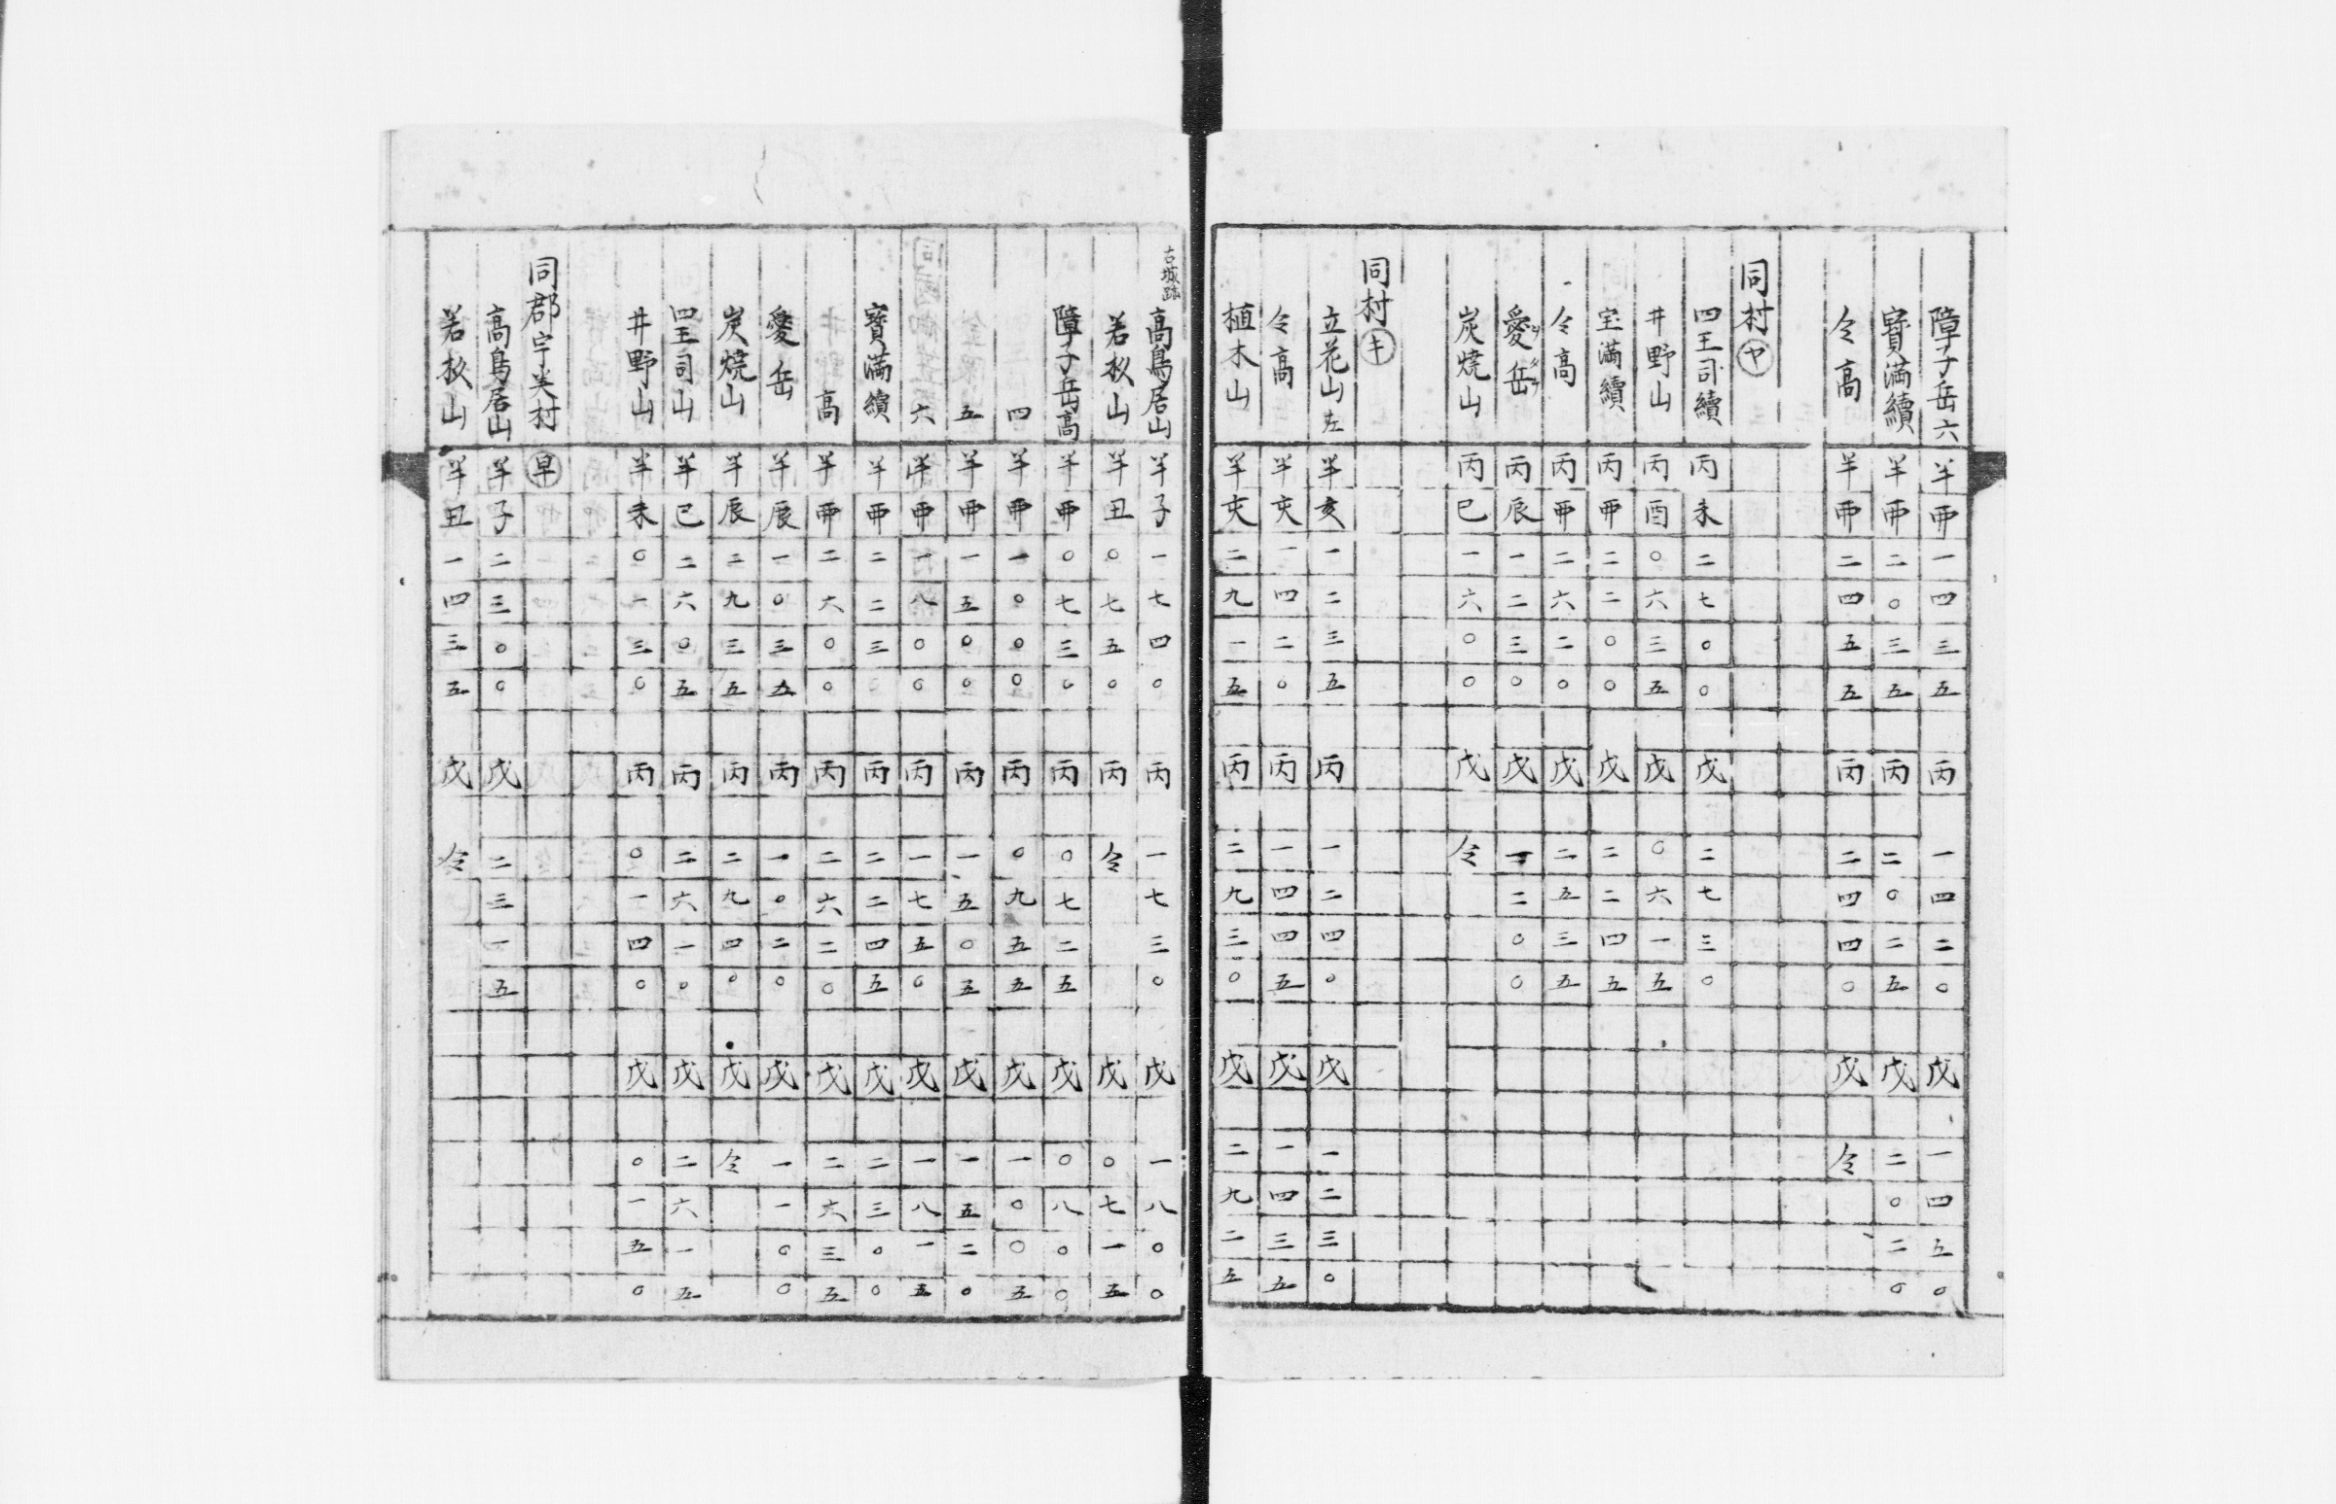 障子岳六 半申 一四三五 丙 一四二〇 戊 一四五〇
寳満續 半申 二〇三五 丙 二〇二五 戊 二〇二〇
仝高 半申 二四五五 丙 二四四〇 戊 仝
同村 ヤ
四王司續 丙未 二七〇〇 戊 二七三〇
井野山 丙酉 〇六三五 戊 〇六一五
宝満續 丙申 二二〇〇 戊 二二四五
仝高 丙申 二六二〇 戊 二五三五
愛岳 丙辰 一二三〇 戊 一二〇〇
炭焼山 丙巳 一六〇〇 戊 仝
同村 キ
立花山左 半亥 一二三五 丙 一二四〇 戊 一二三〇
仝高 半亥 一四二〇 丙 一四四五 戊 一四三五
植木山 半亥 二九一五 丙 二九三〇 戊 二九二五
古城跡
高鳥居山 半子 一七四〇 丙 一七三〇 戊 一八〇〇
若杦山 半丑 〇七五〇 丙 仝 戊 〇七一五
障子岳高 半申 〇七三〇 丙 〇七二五 戊 〇八〇〇
四 半申 一〇〇〇 丙 〇九五五 戊 一〇〇五
五 半申 一五〇〇 丙 一五〇五 戊 一五二〇
六 半申 一八〇〇 丙 一七五〇 戊 一八一五
寳満續 半申 二二三〇 丙 二二四五 戊 二三〇〇
高 半申 二六〇〇 丙 二六二〇 戊 二六三五
愛岳 半辰 一〇三五 丙 一〇二〇 戊 一一〇〇
炭焼山 半辰 二九三五 丙 二九四〇 戊 仝
四王司山 半巳 二六〇五 丙 二六一〇 戊 二六一五
井野山 半未 〇一三〇 丙 〇一四〇 戊 〇一五〇
同郡宇美村 早
高鳥居山 半子 二三〇〇 戊 二三一五
若杦山 半丑 一四三五 戊 仝